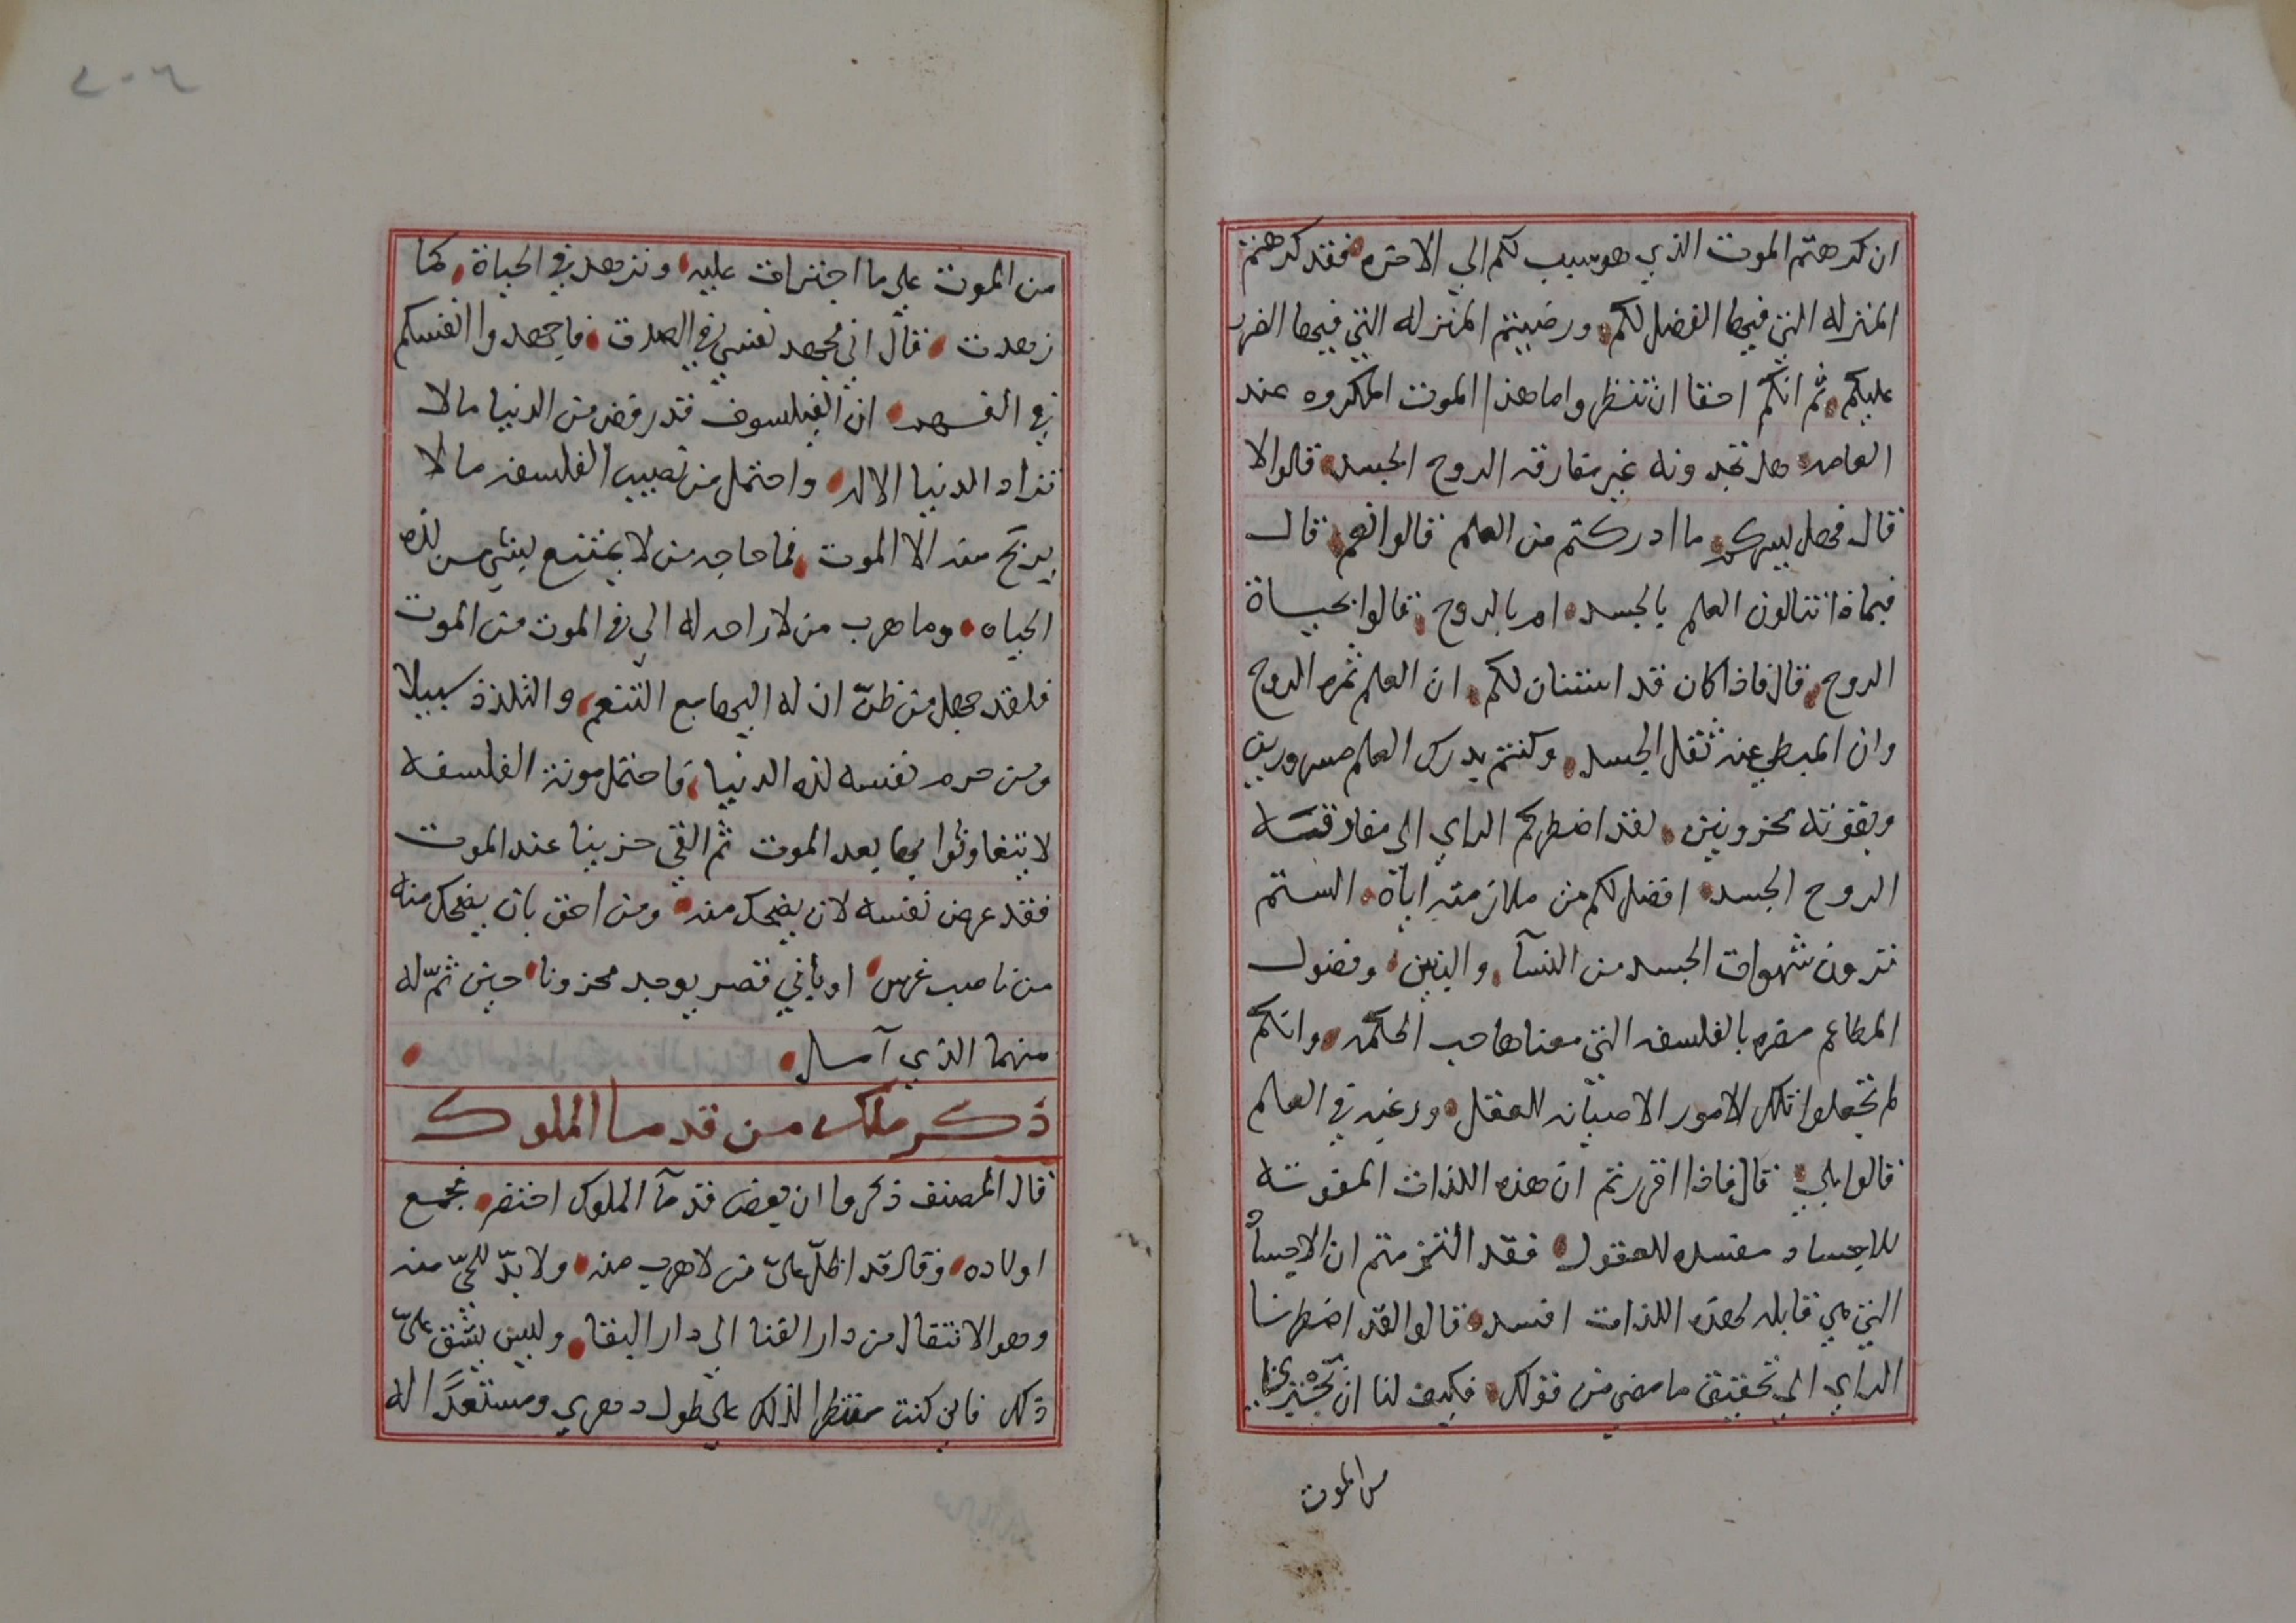 ان كرهتم الموت الذي هو سبب لكم الي الاخره فقد كرهتم
المنزله التي فيها الفضل لكم ورضيتم المنزله التي فيها الضرر
عليكم ثم انكم احقا ان تنظروا ما هذا الموت المكروه عند
العامه هل تجدونه غير مفارقه الروح الجسد قالوا لا
قال فهل يسركم ما ادركتم من العلم قالوا نعم قال
فبماذا تنالون العلم بالجسد ام بالروح قالوا بحياة
الروح قال فاذا كان قد استنان لكم ان العلم ثمره الروح
وان المبطي عنه ثقل الجسد وكنتم بدرك العلم مسرورين
وبفوته محزونين لقد اضطركم الراي الى مفارقته
الروح الجسد افضل لكم من ملازمته اياة الستم
ترون شهوات الجسد من النسآ والبنين وفضول
المطاعم مضره بالفلسفه التي معناها حب الحكمه وانكم
لم تجعلوا تلك الامور الا صيانه للعقل ورغبه في العلم
قالوا بلي قال فاذا اقررتم ان هذه اللذات المقوته
للاجساد مفسده للعقول فقد التزمتم ان الاجسا
التي هي قابله لهذه اللذات افسد قالوا لقد اضطرنا
الراي الي تحقيق ما مضى من قولك فكيف لنا ان
من الموت
٢٠٦
من الموت علي ما اجترات عليه ونزهد في الحياة كما
زهدت فقال اني مجهد نفسي في الصدق فاجهدوا انفسكم
في الفهم ان الفيلسوف قد رفض من الدنيا ما لا
تراد الدنيا الا له واحتمل من نصيب الفلسفه ما لا
يريح منه الا الموت فما حاجه من لا يمتنع بشي من لذه
الحياه وما هرب من لا راحه له الي في الموت من الموت
فلقد جهل من ظنّ ان له اليها مع التنعم والتلذذ سبيلا
ومن حرم نفسه لذه الدنيا فاحتمل مونة الفلسفه
بها بعد الموت ثم القي حزينا عند الموت
فقد عرض نفسه لان يضحك منه ومن احق بان يضحك منه
من ناصب غرس او باني قصر يوجد محزونا حين تمّ له
منهما الذي آمل
ذكر ملك من قدما الملوك
قال المصنف ذكروا ان بعض قدمآ الملوك احتضر فجمع
اولاده وقال قد اظلّ عليّ من لا هرب منه ولا بدّ للحيّ منه
وهو الانتقال من دار الفنا الي دار البقا وليس يشق عليّ
ذلك فاني كنت منتظرا لذلك علي طول دهري ومستعدًا له